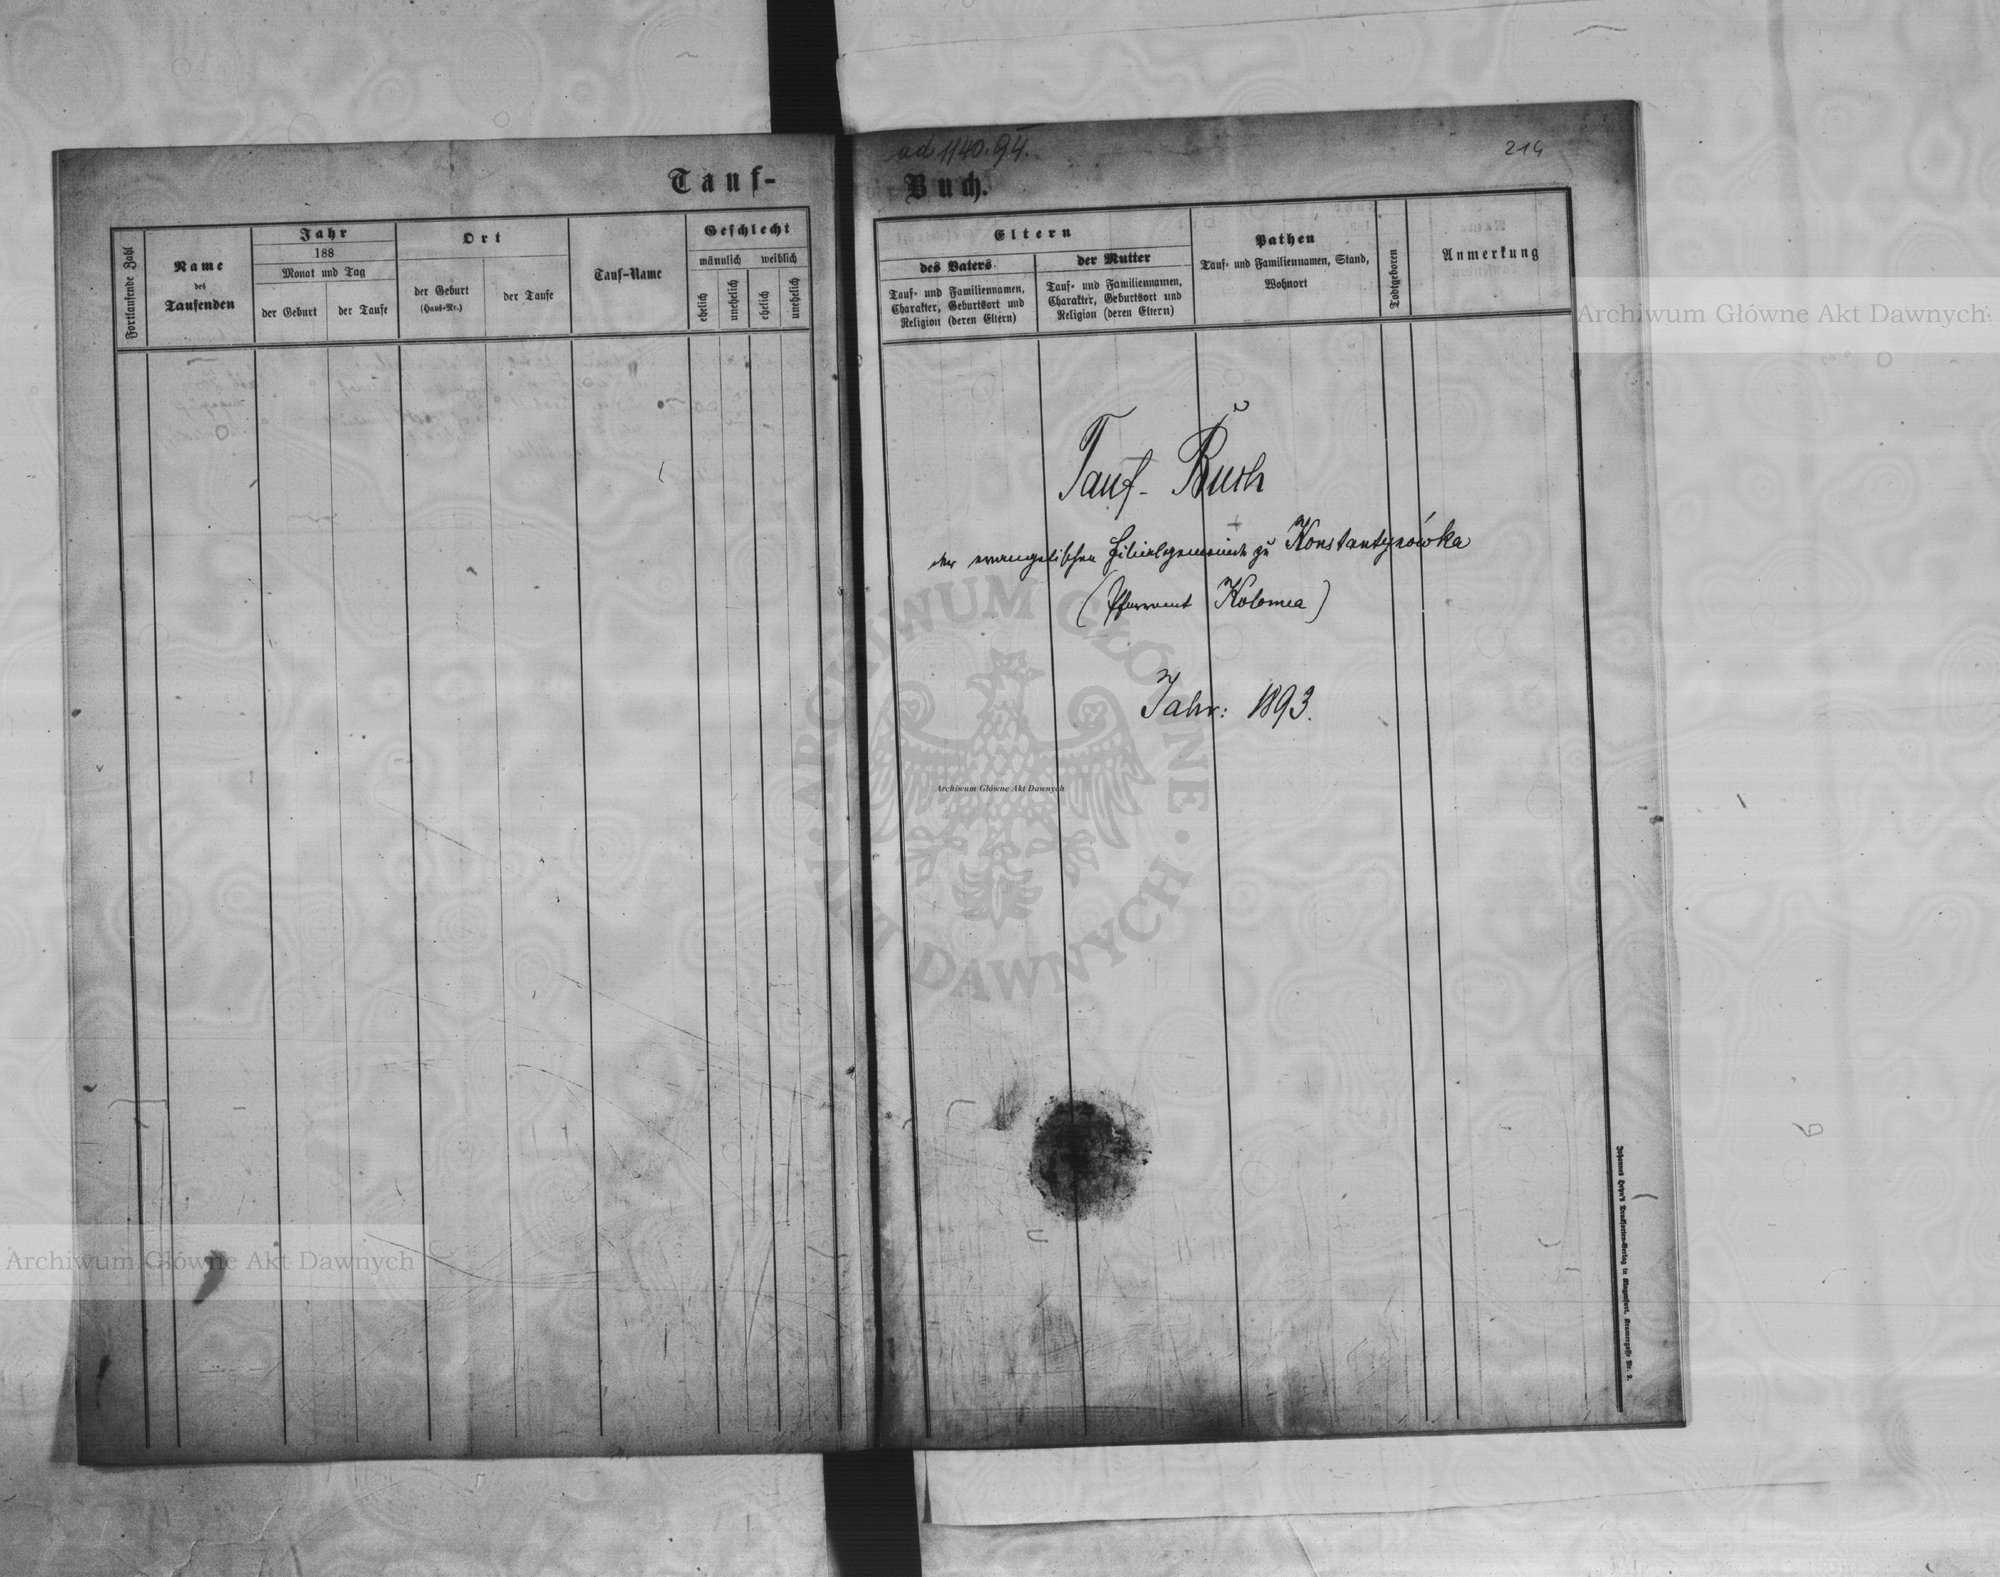 ad 1140.94.
214
Tauf-
Buch.
Fortlaufende Zahl
Name
des
Taufenden
Jahr
188
Monat und Tag
der Geburt
der Taufe
Ort
der Geburt
(Haus-Nr.)
der Taufe
Tauf-Name
Geschlecht
männlich
weiblich
ehelich
unehelich
ehelich
unehelich
Eltern
des Vaters
Tauf- und Familiennamen,
Charakter, Geburtsort und
Religion (deren Eltern)
der Mutter
Tauf- und Familiennamen,
Charakter, Geburtsort und
Religion (deren Eltern)
Pathen
Tauf- und Familiennamen, Stand,
Wohnort
Todtgeboren
Anmerkung
Tauf- Buch
der evangelischen Filialgemeinde zu Konstantynówka
(Pfarramt Kolomea)
Jahr: 1893.
Johannes Heyn's Drucksorten-Verlag in Klagenfurt, Kramergasse Nr. 2.
Archiwum Główne Akt Dawnych
ARCHIWUM GŁÓWNE · AKT DAWNYCH ·
Archiwum Główne Akt Dawnych
Archiwum Główne Akt Dawnych